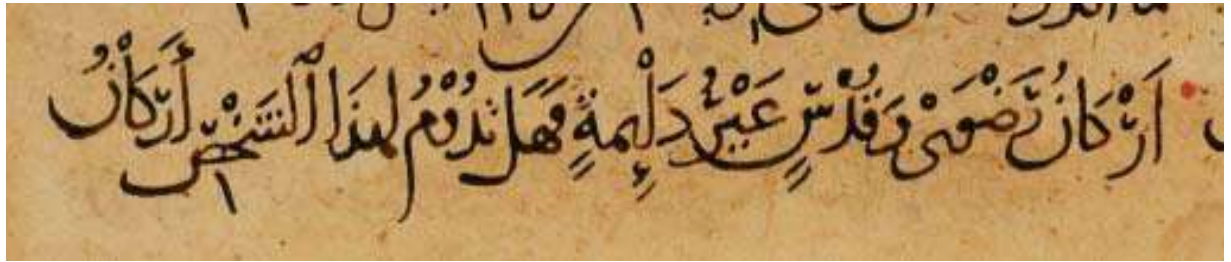 اَرْكَانُ رَضْوَىْ وَقُدْسٍ غَيْرُ دَائِمةٍ فَهَل تَدُوْمُ لهذَا الشَّخْصِ أَرْكَانُ